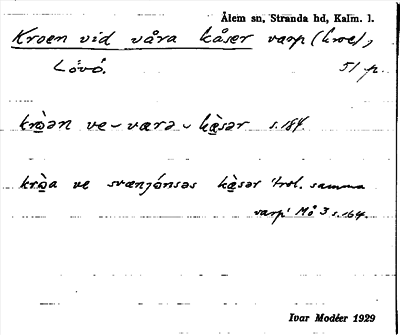 Ålem sn, Stranda hd, Kalm. l.
Kroen vid våra kåser varp (kroe),
Lövö. 51 p.
krò̱ən ve-værə-kà̱sər s. 184.
krò̱a ve svænjónsəs kà̱sər 'trol. samma
varp' Mö 3 s. 164.
Ivar Modéer 1929